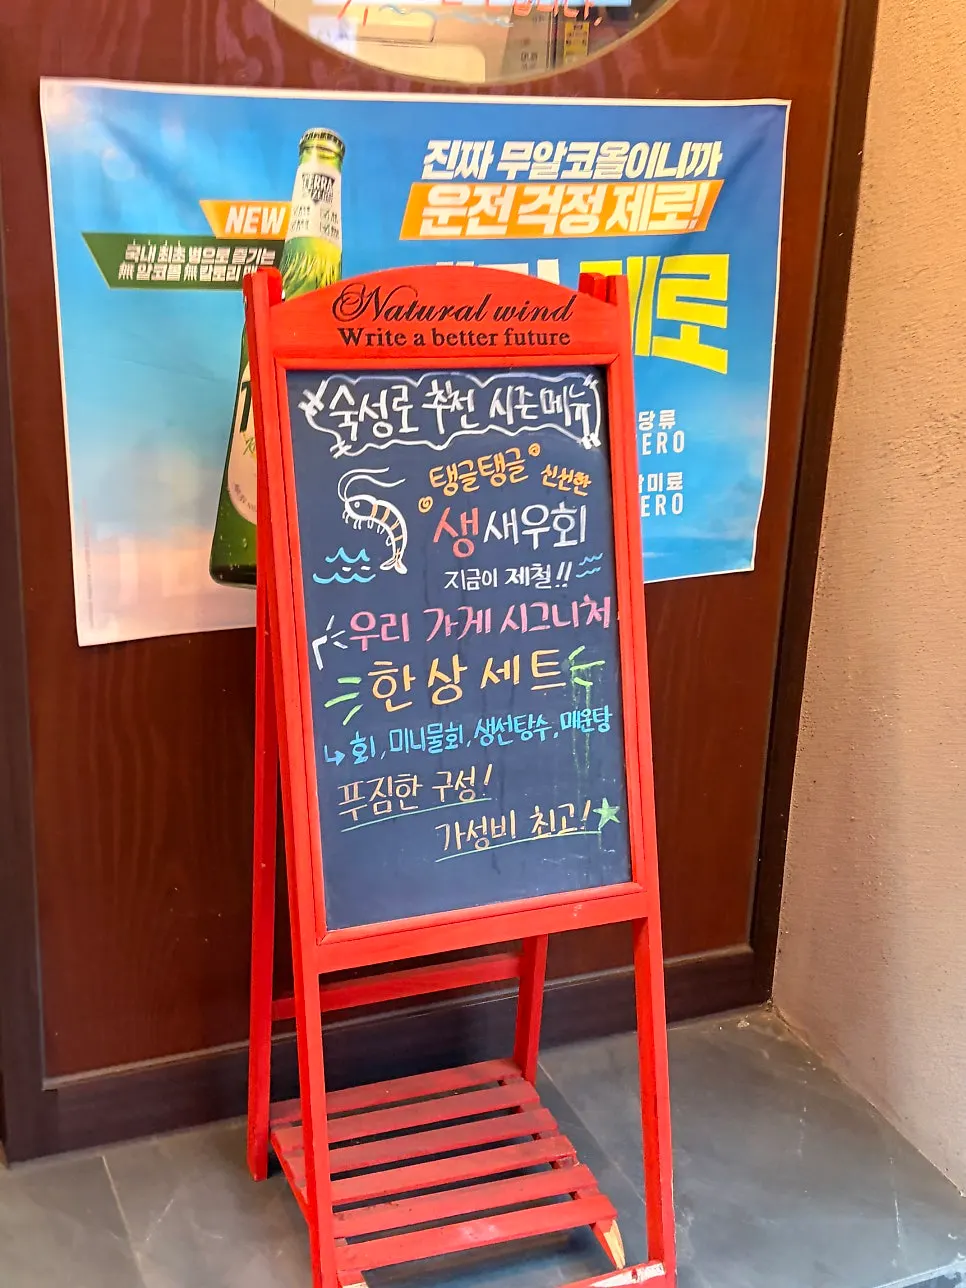 진짜 무알코올이니까
운전 걱정 제로!
NEW
국내 최초 병으로 즐기는
無 알코올 無 칼로리
TERRA
제로
당류
ZERO
감미료
ZERO
Natural wind
Write a better future
숙성로 추천 시즌메뉴
탱글탱글 신선한
생새우회
지금이 제철!!
우리 가게 시그니처
한상 세트
↳ 회, 미니물회, 생선탕수, 매운탕
푸짐한 구성!
가성비 최고!